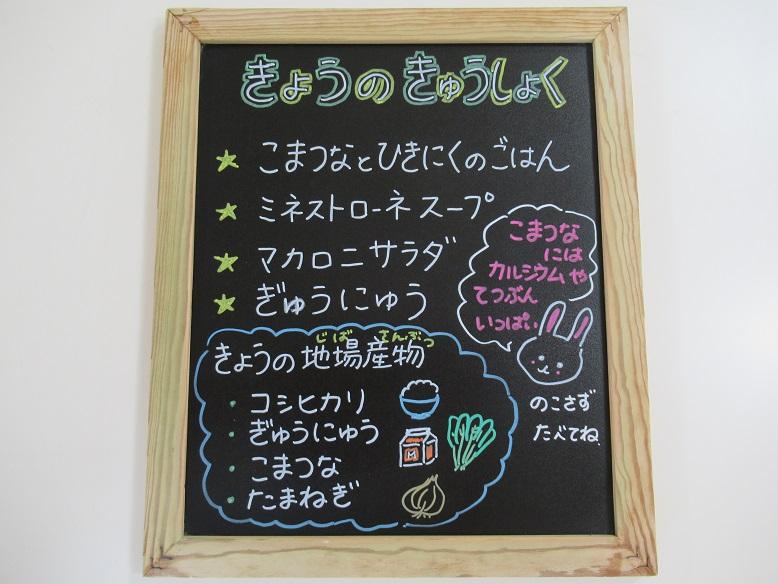 きょうの きゅうしょく
★ こまつなとひきにくのごはん
★ ミネストローネスープ
★ マカロニサラダ
★ ぎゅうにゅう
こまつな
には
カルシウムや
てつぶん
いっぱい
のこさず
たべてね
じば さんぶつ
きょうの 地場産物
・コシヒカリ
・ぎゅうにゅう
・こまつな
・たまねぎ
M